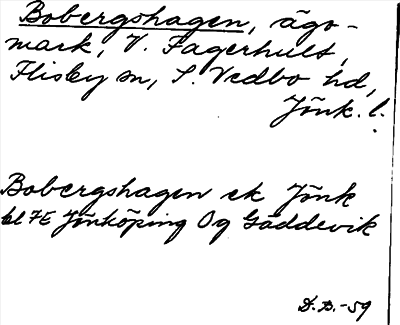 Bobergshagen, ägo-
mark, V. Fagerhult,
Flisby sn, S. Vedbo hd,
Jönk. l.
Bobergshagen ek Jönk
bl 7E Jönköping Og Gäddevik
D.B.-59